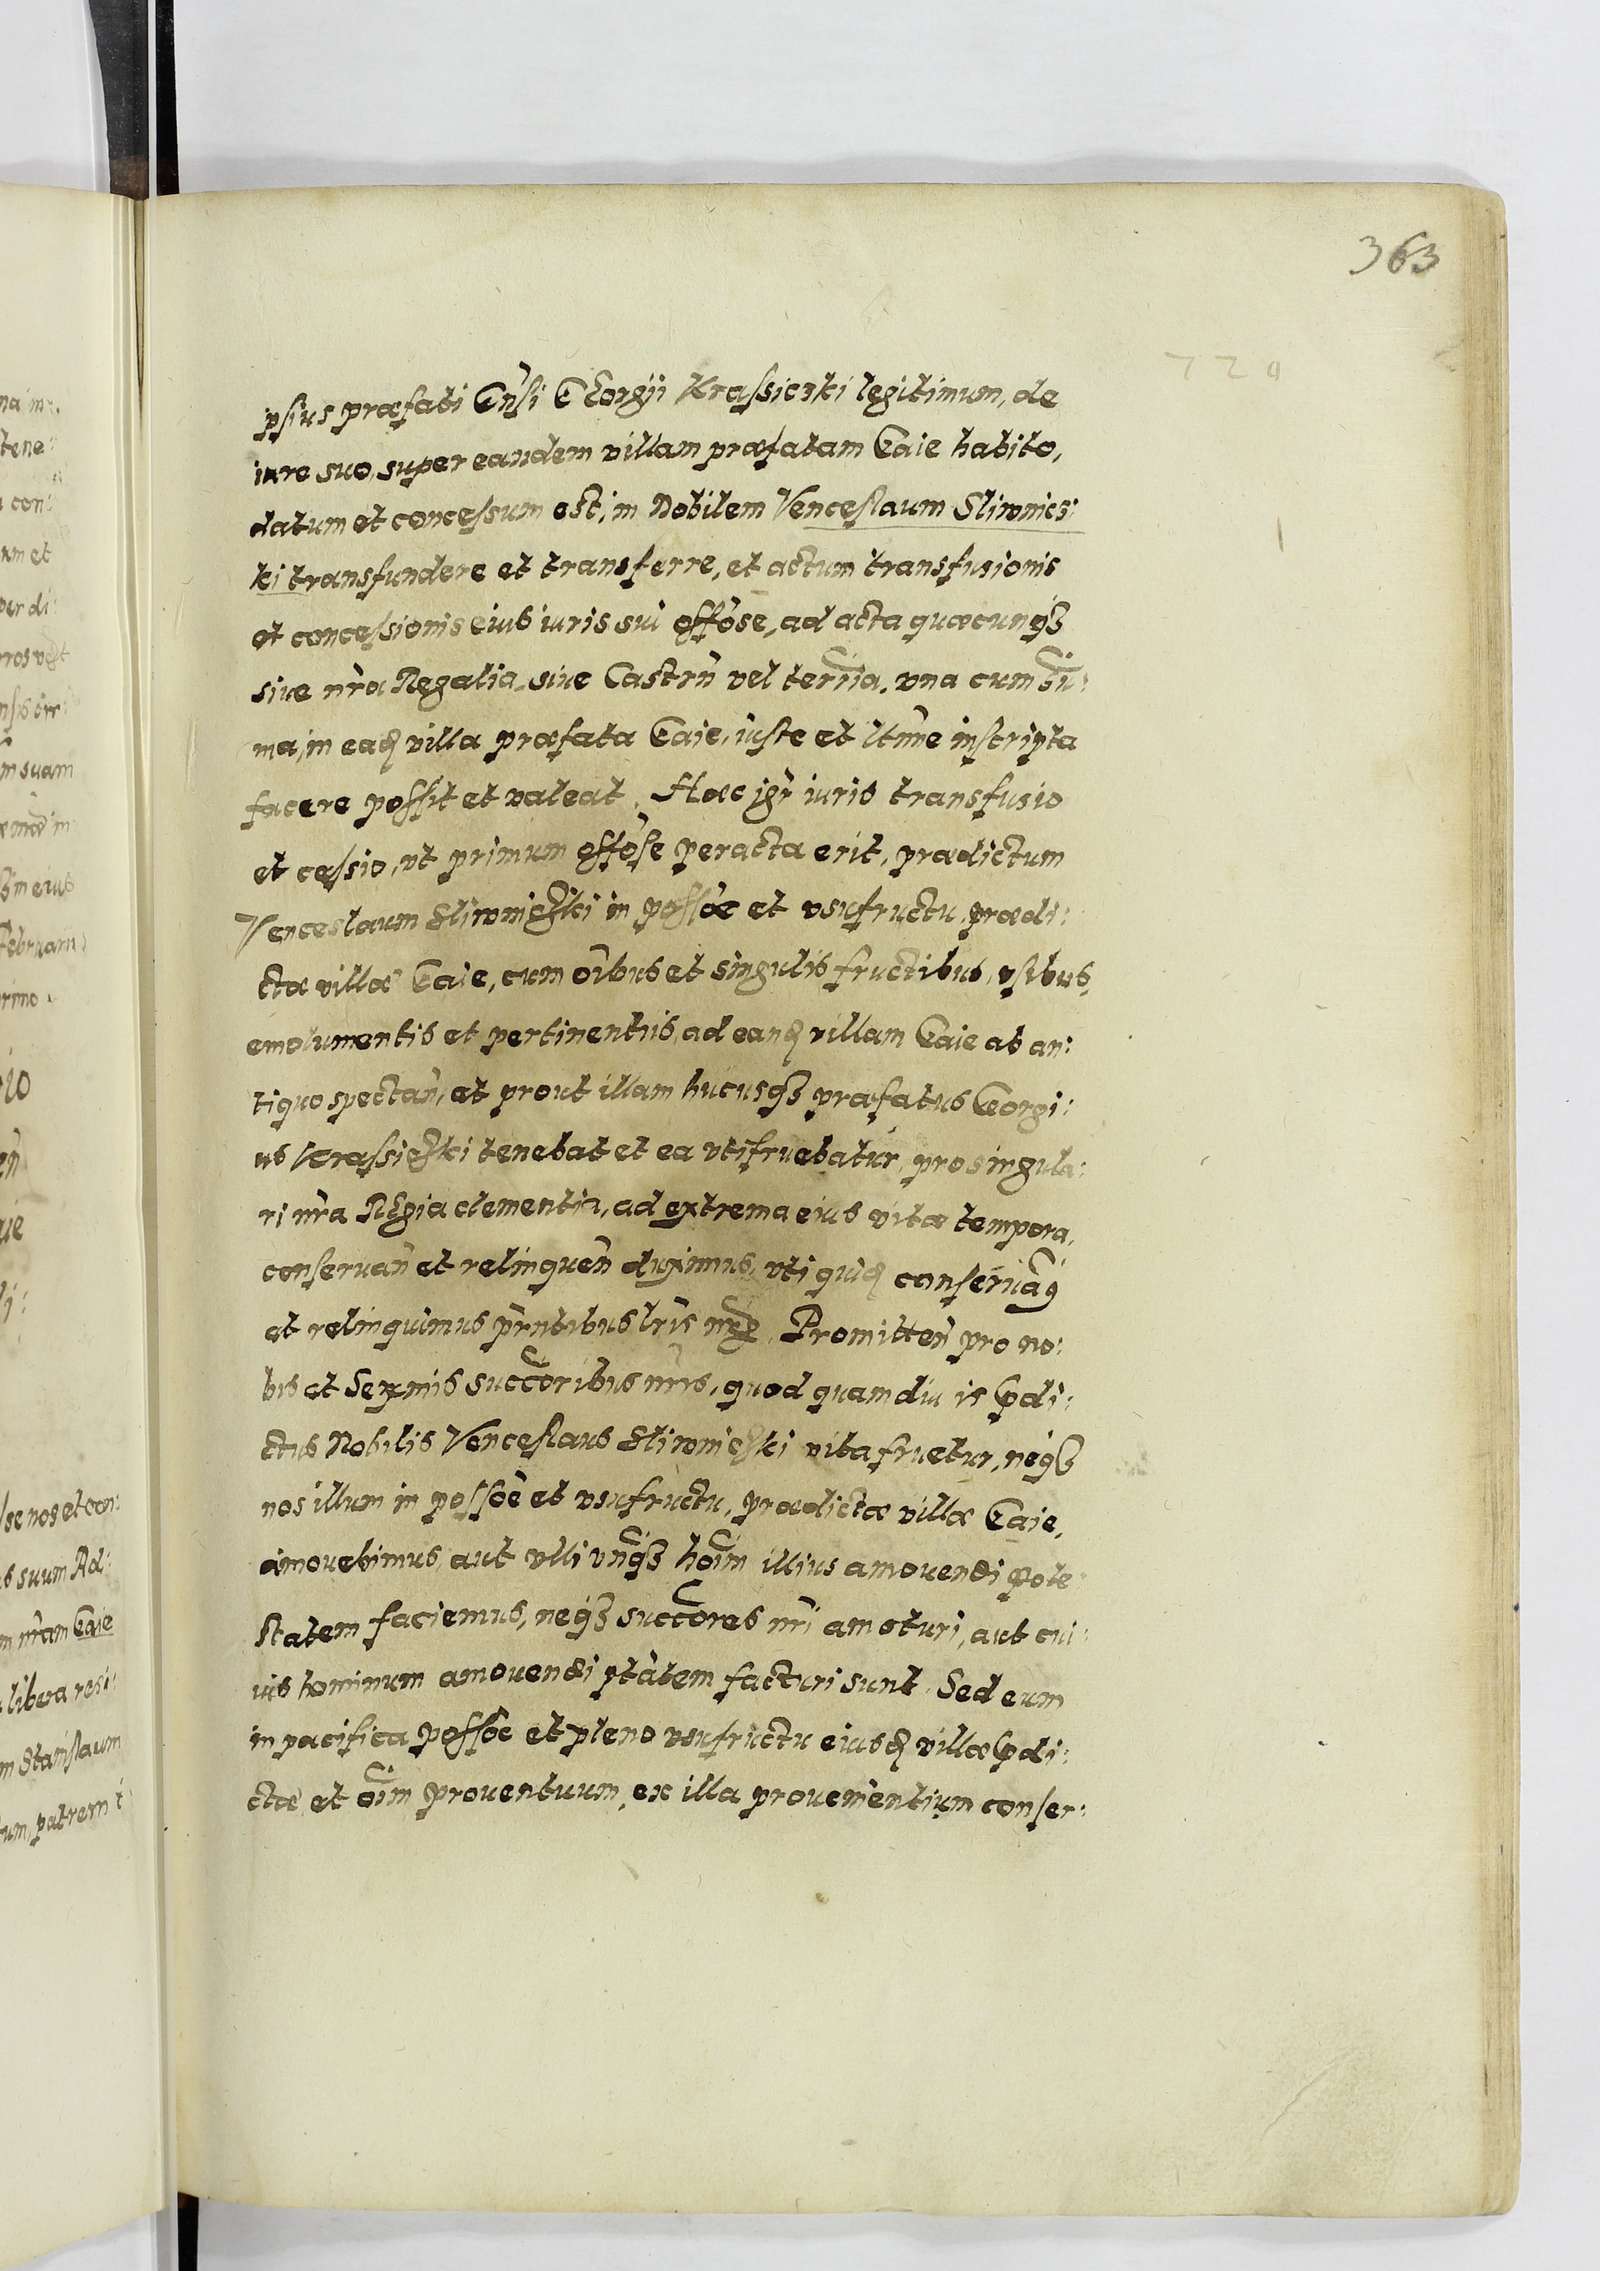 363
720
ipsius præfati Gnsi Georgii Krassiczki legitimum, de
iure suo, super eandem villam præfatam Gaie habito,
datum et concessum est, in Nobilem Venceslaum Sliwnics:
ki transfundere et transferre, et actum transfusionis
et concessionis eius iuris sui offose, ad acta quæcunqꝫ
siue nra Regalia, siue Castrn vel terria, vna cum su:
ma, in eadꝫ villa præfata Gaie, iuste et ltime inscripta
facere possit et valeat. Hæc igr iuris transfusio
et cessio, vt primum offose peracta erit, prædictum
Venceslaum Sliwnicski in possoe et vsufructu, prædi:
ctæ villæ Gaie, cum oibus et singulis fructibus, vsibus,
emolumentis et pertinentiis, ad eandꝫ villam Gaie ab an:
tiquo spectan, et prout illam hucusqꝫ præfatus Georgi:
us Krassicski tenebat et ea vtifruebatur, pro singula:
ri nra Regia clementia, ad extrema eius vitæ tempora,
conseruan et relinquen duximus, vti quidꝫ conseruamꝰ
et relinquimus prntibus lris nris. Promitten pro no:
bis et Sermis succoribus nris, quod quamdiu is pdi:
ctus Nobilis Venceslaus Sliwnicski vita fruetur, neqꝫ
nos illum in possoe et vsufructu, prædictæ villæ Gaie,
amouebimus, aut vlli vnqꝫ hoim illius amouendi pote:
statem faciemus, neqꝫ succores nri amoturi, aut cui:
uis hominum amouendi ptatem facturi sunt. Sed eum
in pacifica possoe et pleno vsufructu eiusdꝫ villæ pdi:
ctæ, et oim prouentuum, ex illa prouenientium conser: